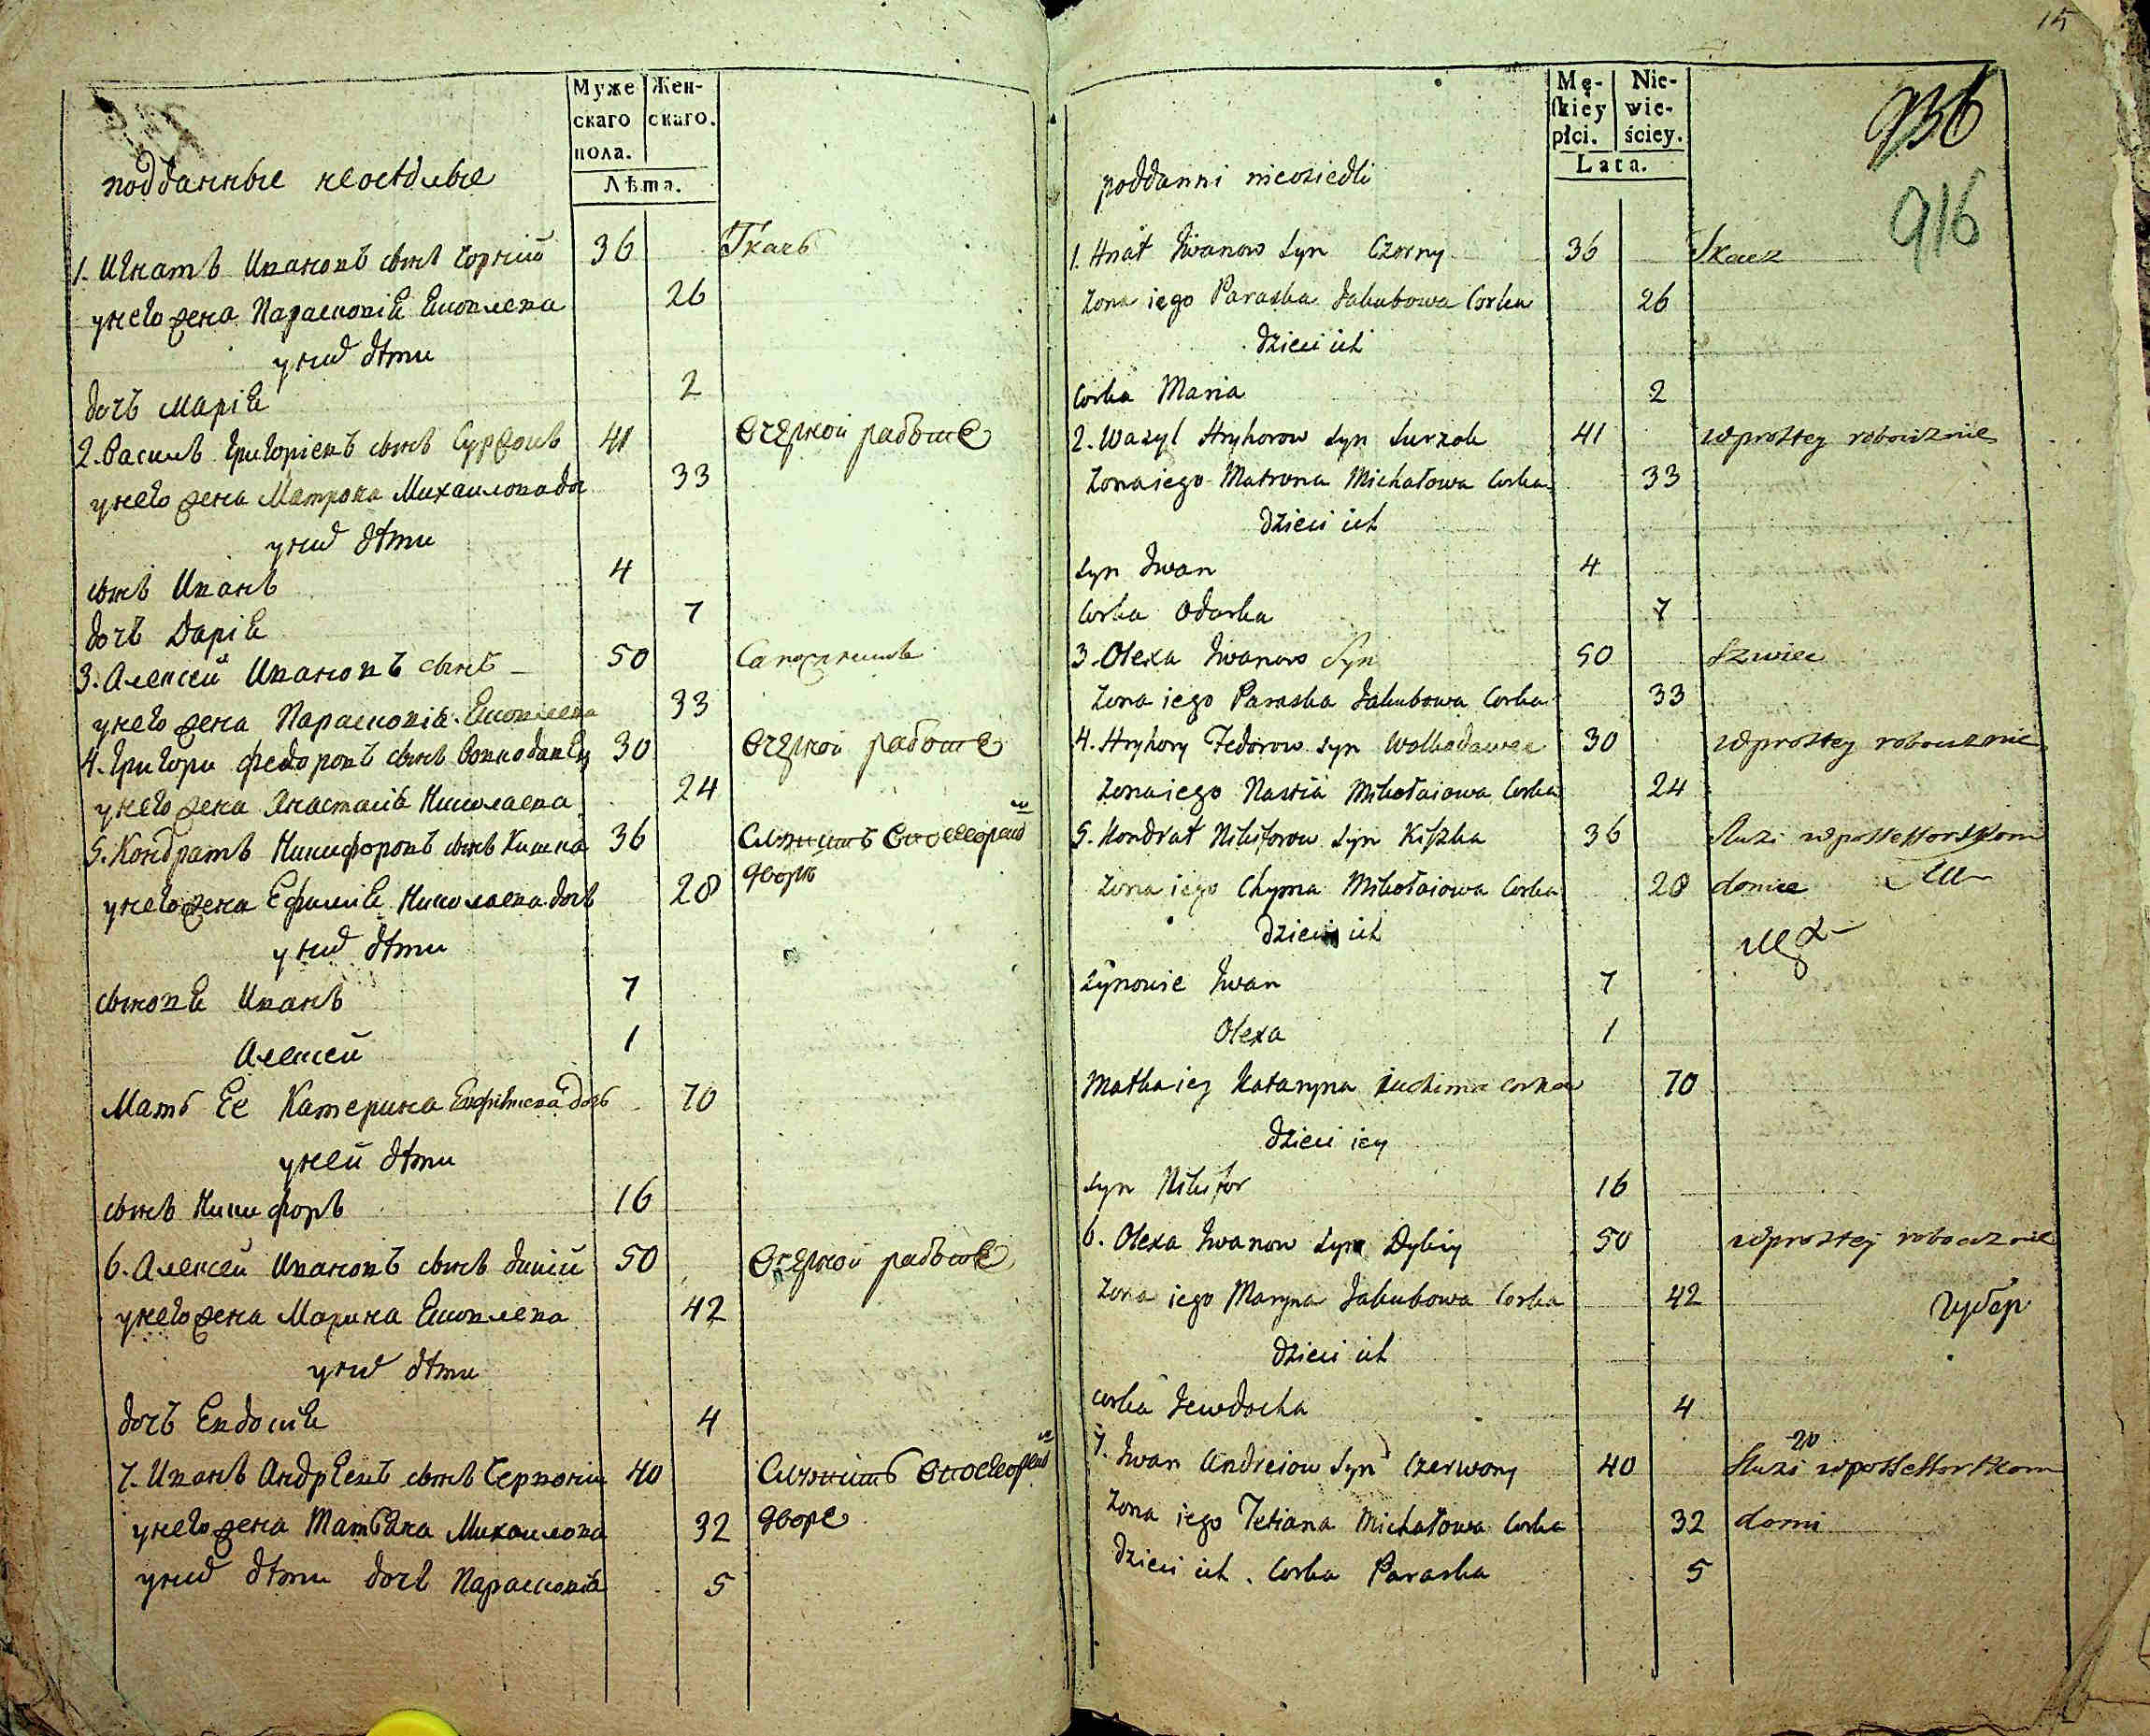 Муже
скаго
пола.
Жен-
скаго.
Лѣта.
подданные неоседлые
1. Игнатъ Ивановъ сынъ Чорний 36 Ткачь
у него жена Парасковія Яковлева 26
у них дѣти
дочь Марія 2
2. Василь Григоріевъ сынъ Суржокъ 41 в чорной работе
у него жена Матрона Михаилова до 33
у них дѣти
сынъ Иванъ 4
дочь Дарія 7
3. Алексей Ивановъ сынъ 50 Сапожникъ
у него жена Парасковія Яковлева 33
4. Григори Федоровъ сынъ 30 в чорной работе
у него жена Анастасія Николаева 24
5. Кондратъ Никифоровъ сынъ Кишка 36 Служитъ
у него жена Ефимія Николаева дочь 28 дворе
у них дѣти
сыновя Иванъ 7
Алексей 1
Мать Ее Катерина дочь 70
у неей дѣти
сынъ Никифоръ 16
6. Алексей Ивановъ сынъ Дикій 50 в чорной работе
у него жена Марина Яковлева 42
у них дѣти
дочь Евдокія 4
7. Иванъ Андреевъ сынъ Червоній 40 Служитъ
у него жена Татіана Михаилова 32 дворе
у них дѣти дочь Парасковія 5
15
Mę-
skiéy
płci.
Nie-
wie-
ściey.
Lata.
936
916
poddanni nieosiedli
1. Hnat Iwanow Syn Czorny 36 Tkacz
Zona iego Paraska Jakubowa Corka 26
dzieci ich
Corka Maria 2
2. Wasyl Hryhorow Syn Surzok 41 w prostey robociznie
Zona iego Matrona Michałowa Corka 33
dzieci ich
Syn Iwan 4
Corka Odarka 7
3. Olexa Iwanow Syn 50 Szwiec
Zona iego Paraska Jakubowa Corka 33
4. Hryhory Fedorow Syn Wolkodawec 30 w prostey robociznie
Zona iego Nastia Mikołaiowa Corka 24
5. Kondrat Nikiforow Syn Kiszka 36 Służi w possessorskom
Zona iego Chyma Mikołaiowa Corka 28 domie
dzieci ich
Synowie Iwan 7
Olexa 1
Matka iey Kataryna Corka 70
dzieci iey
Syn Nikifor 16
6. Olexa Iwanow Syn Dykiy 50 w prostej robociznie
Zona iego Maryna Jakubowa Corka 42
dzieci ich
Corka Jewdocha 4
7. Iwan Andreiow Syn Czerwony 40 Służi w possessorskom
Zona iego Tetiana Michałowa Corka 32 domi
dzieci ich. Corka Paraska 5